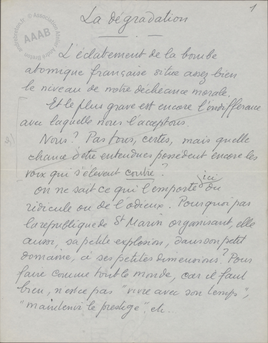 1
La dégradation
AAAB
L'éclatement de la bombe
atomique française situe assez bien
le niveau de notre déchéance morale.
Et le plus grave est encore l'indifférence
avec laquelle nous l'acceptons.
Nous? Pas tous, certes, mais quelle
chance d'être entendues possèdent encore les
voix qui s'élèvent contre?
ici
on ne sait ce qui l'emporte du
ridicule ou de l'odieux. Pourquoi pas
la république de St Marin organisant, elle
aussi, sa petite explosion, dans son petit
domaine, à ses petites dimensions? Pour
faire comme tout le monde, car il faut
bien, n'est-ce pas "vivre avec son temps",
"maintenir le prestige", etc.